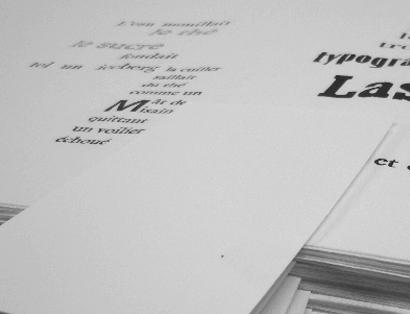 L'eau mouillait
le thé
le sucre
fondait
tel un iceberg la cuiller
saillait
du thé
comme un
Mât de
Misain
quittant
un voilier
échoué
typogra
Las
et